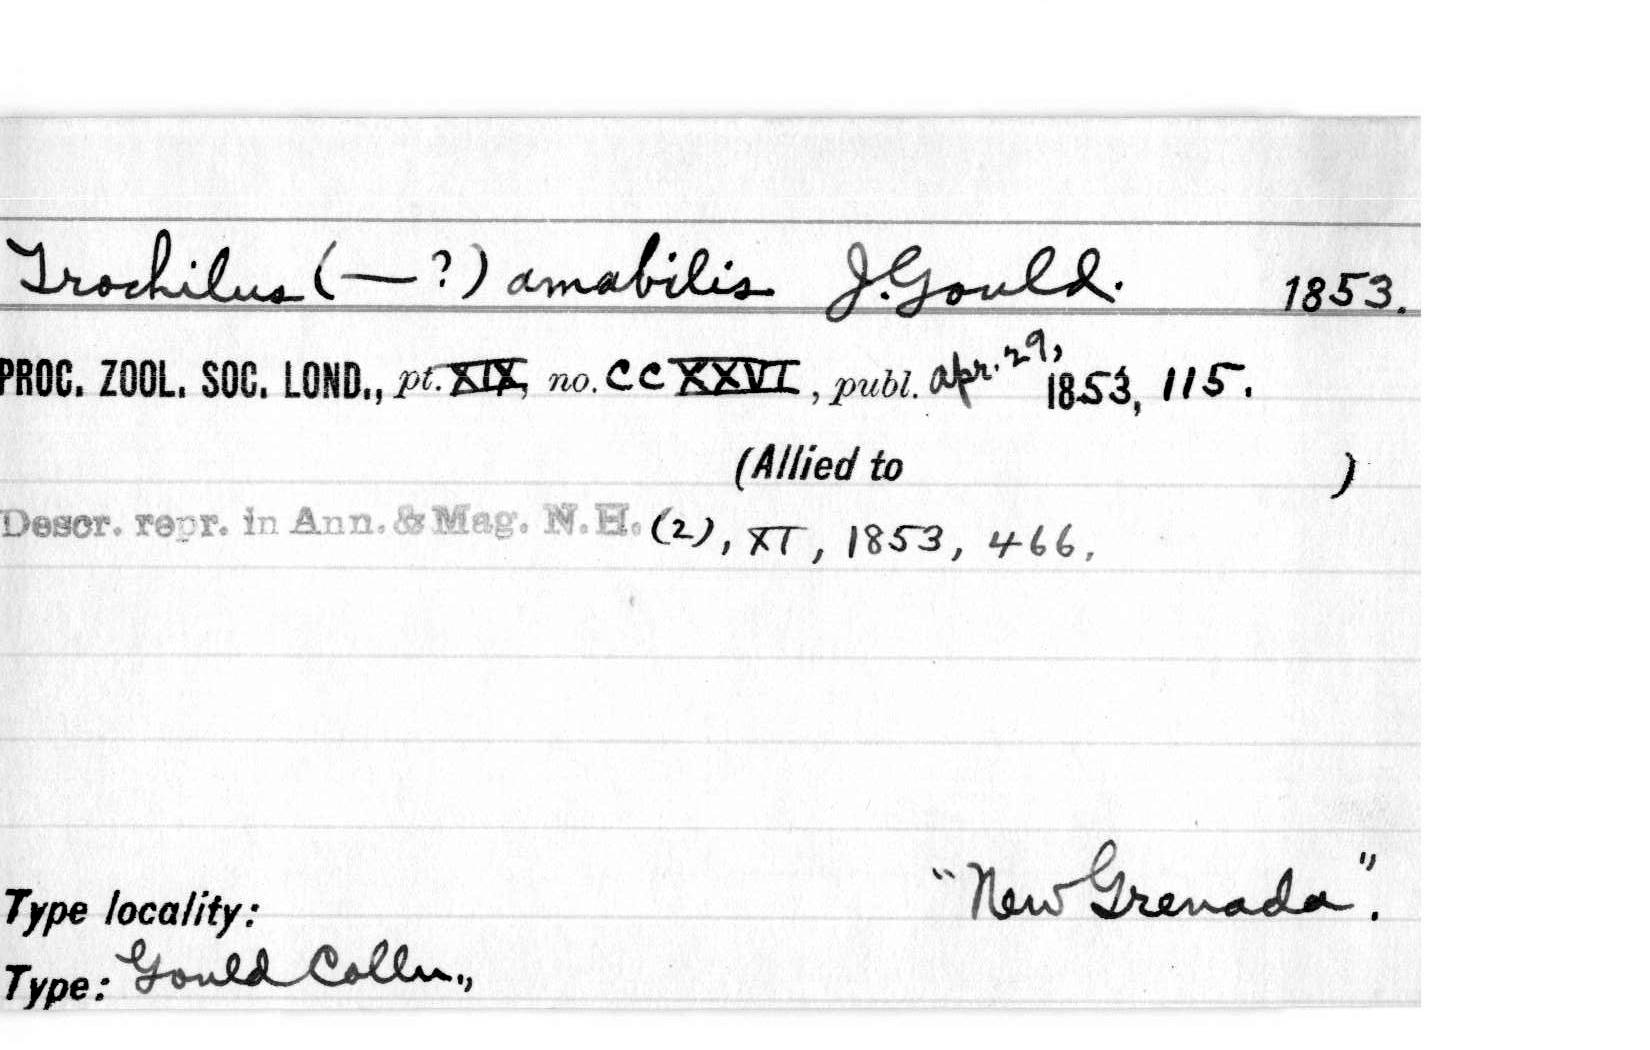 Trochilus (— ?) amabilis J. Gould. 1853.
PROC. ZOOL. SOC. LOND., pt. XIX, no. CCXXVI, publ. Apr. 29, 1853, 115.
(Allied to )
Descr. repr. in Ann. & Mag. N.H. (2), XI, 1853, 466.
Type locality: "New Grenada".
Type: Gould Colln.,